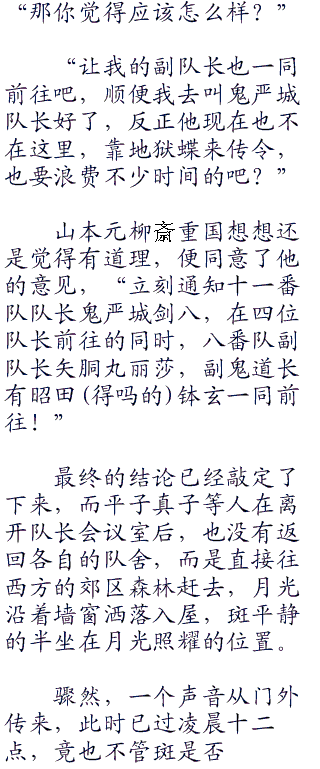 “那你觉得应该怎么样？”
“让我的副队长也一同
前往吧，顺便我去叫鬼严城
队长好了，反正他现在也不
在这里，靠地狱蝶来传令，
也要浪费不少时间的吧？”
山本元柳斎重国想想还
是觉得有道理，便同意了他
的意见，“立刻通知十一番
队队长鬼严城剑八，在四位
队长前往的同时，八番队副
队长矢胴丸丽莎，副鬼道长
有昭田(得吗的)钵玄一同前
往！”
最终的结论已经敲定了
下来，而平子真子等人在离
开队长会议室后，也没有返
回各自的队舍，而是直接往
西方的郊区森林赶去，月光
沿着墙窗洒落入屋，斑平静
的半坐在月光照耀的位置。
骤然，一个声音从门外
传来，此时已过凌晨十二
点，竟也不管斑是否